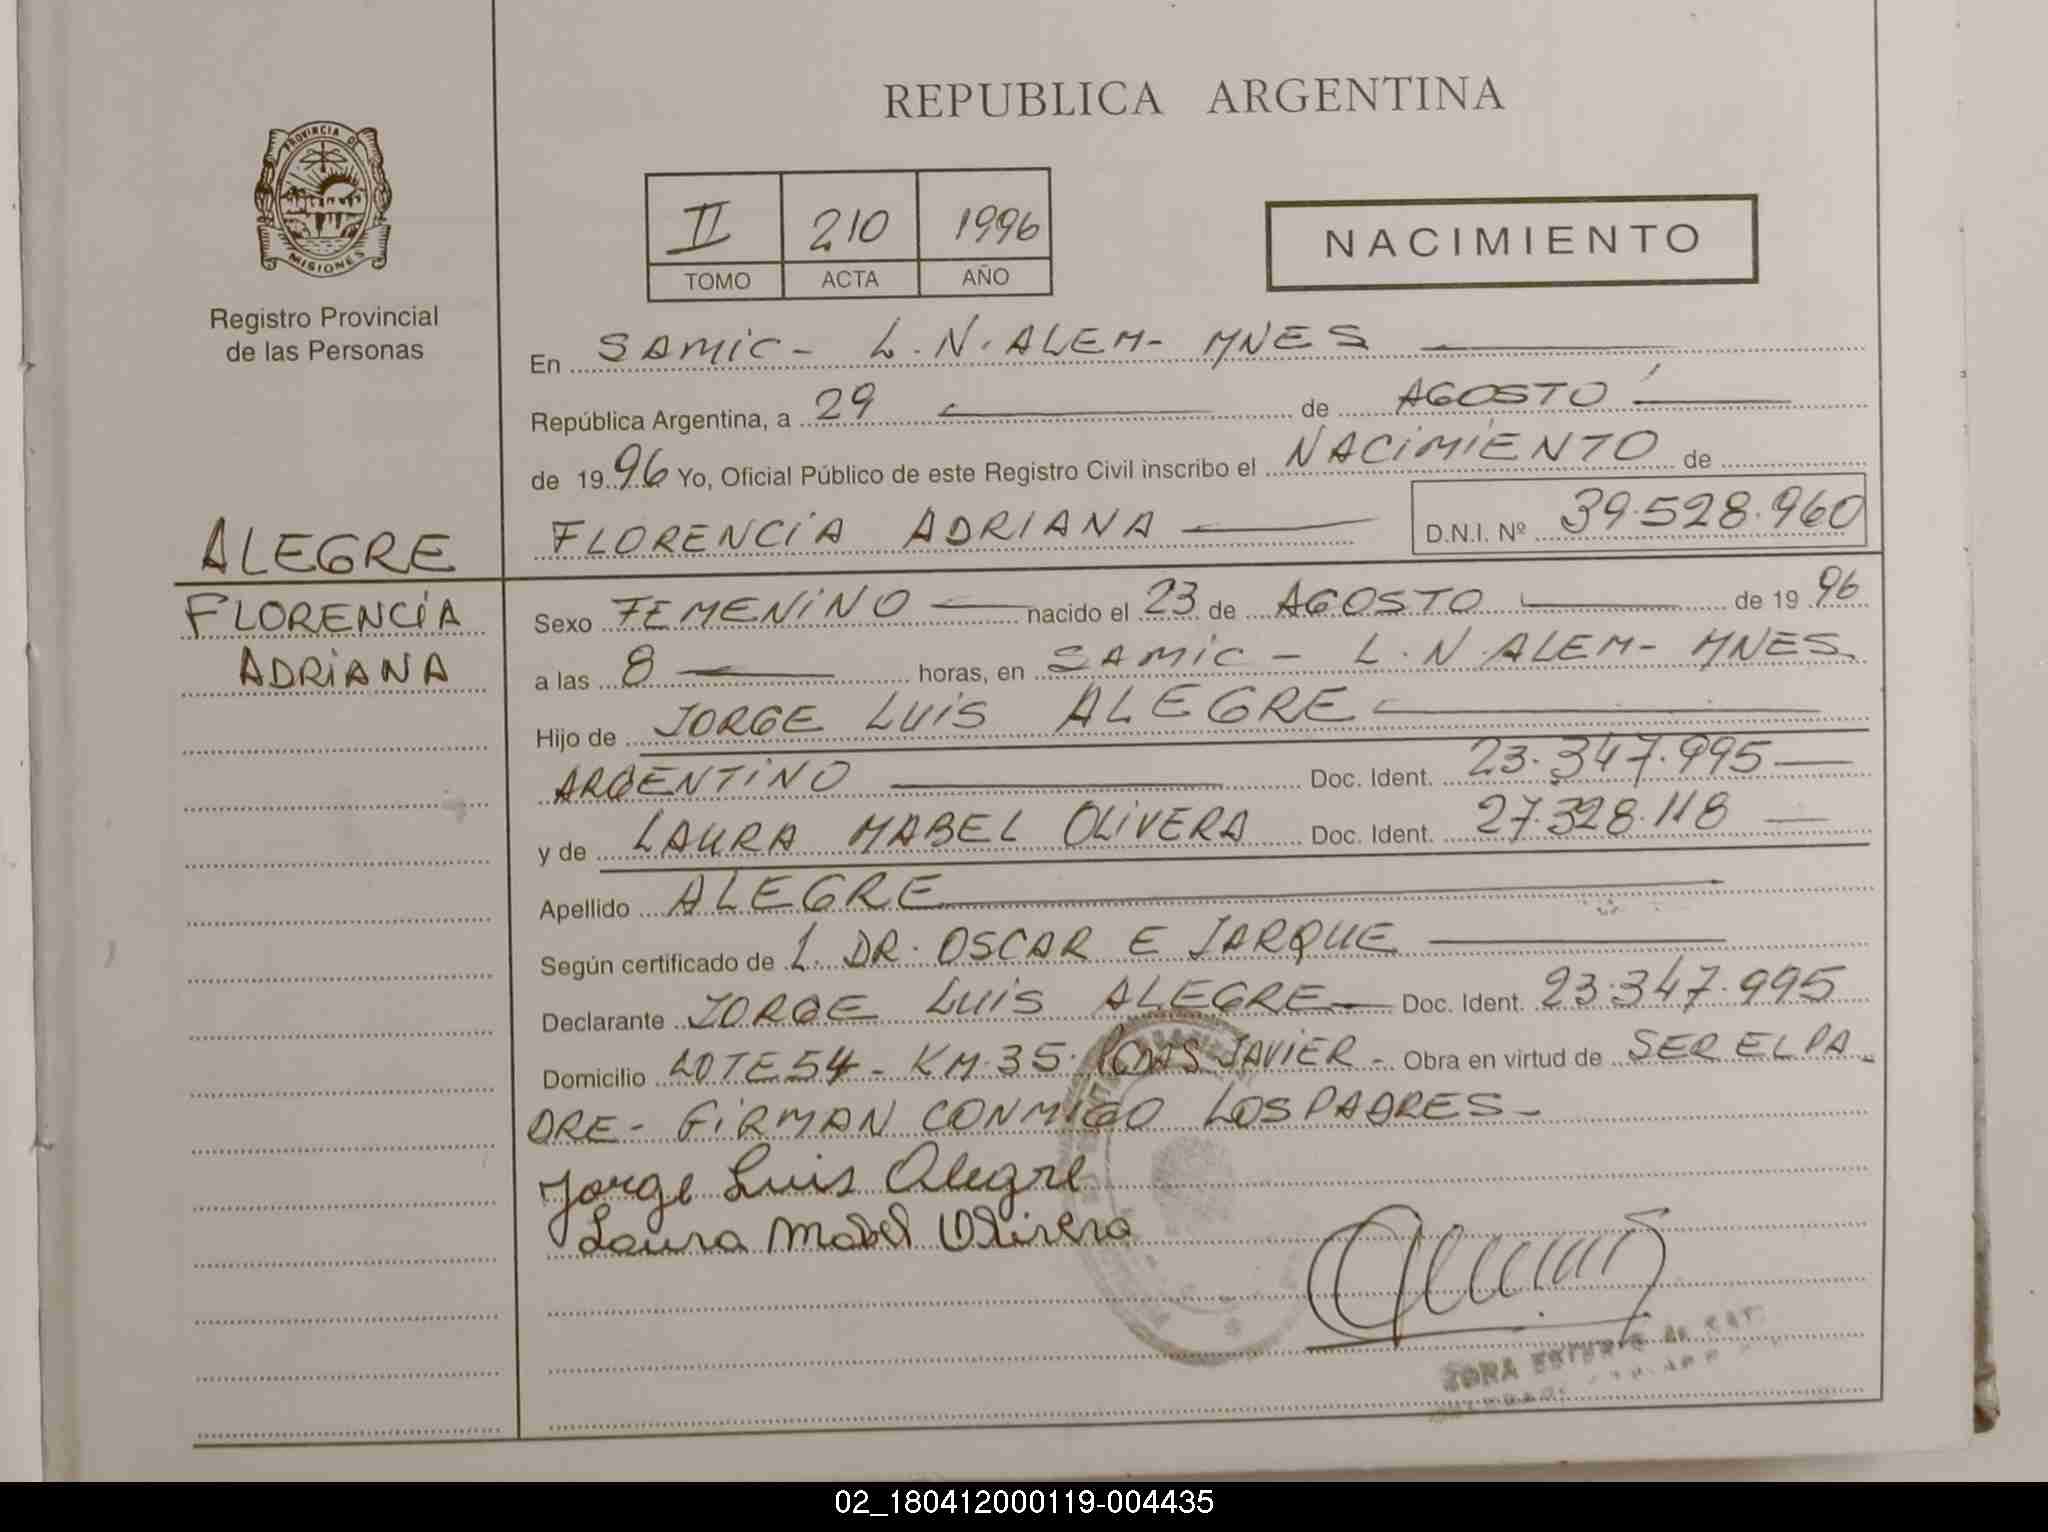 PROVINCIA DE
MISIONES
Registro Provincial
de las Personas
ALEGRE
FLORENCIA
ADRIANA
REPUBLICA ARGENTINA
II 210 1996
TOMO ACTA AÑO
NACIMIENTO
En SAMIC - L.N. ALEM - MNES
República Argentina, a 29 de AGOSTO
de 1996 Yo, Oficial Público de este Registro Civil inscribo el NACIMIENTO de
FLORENCIA ADRIANA D.N.I. Nº 39.528.960
Sexo FEMENINO nacido el 23 de AGOSTO de 1996
a las 8 horas, en SAMIC - L.N. ALEM - MNES
Hijo de JORGE LUIS ALEGRE
ARGENTINO Doc. Ident. 23.347.995
y de LAURA MABEL OLIVERA Doc. Ident. 27.328.118
Apellido ALEGRE
Según certificado de L. DR. OSCAR E JARQUE
Declarante JORGE LUIS ALEGRE Doc. Ident. 23.347.995
Domicilio LOTE 54 - KM. 35. JAVIER - Obra en virtud de SER EL PA
DRE - FIRMAN CONMIGO LOS PADRES -
Jorge Luis Alegre
Laura Mabel Olivera
02_180412000119-004435